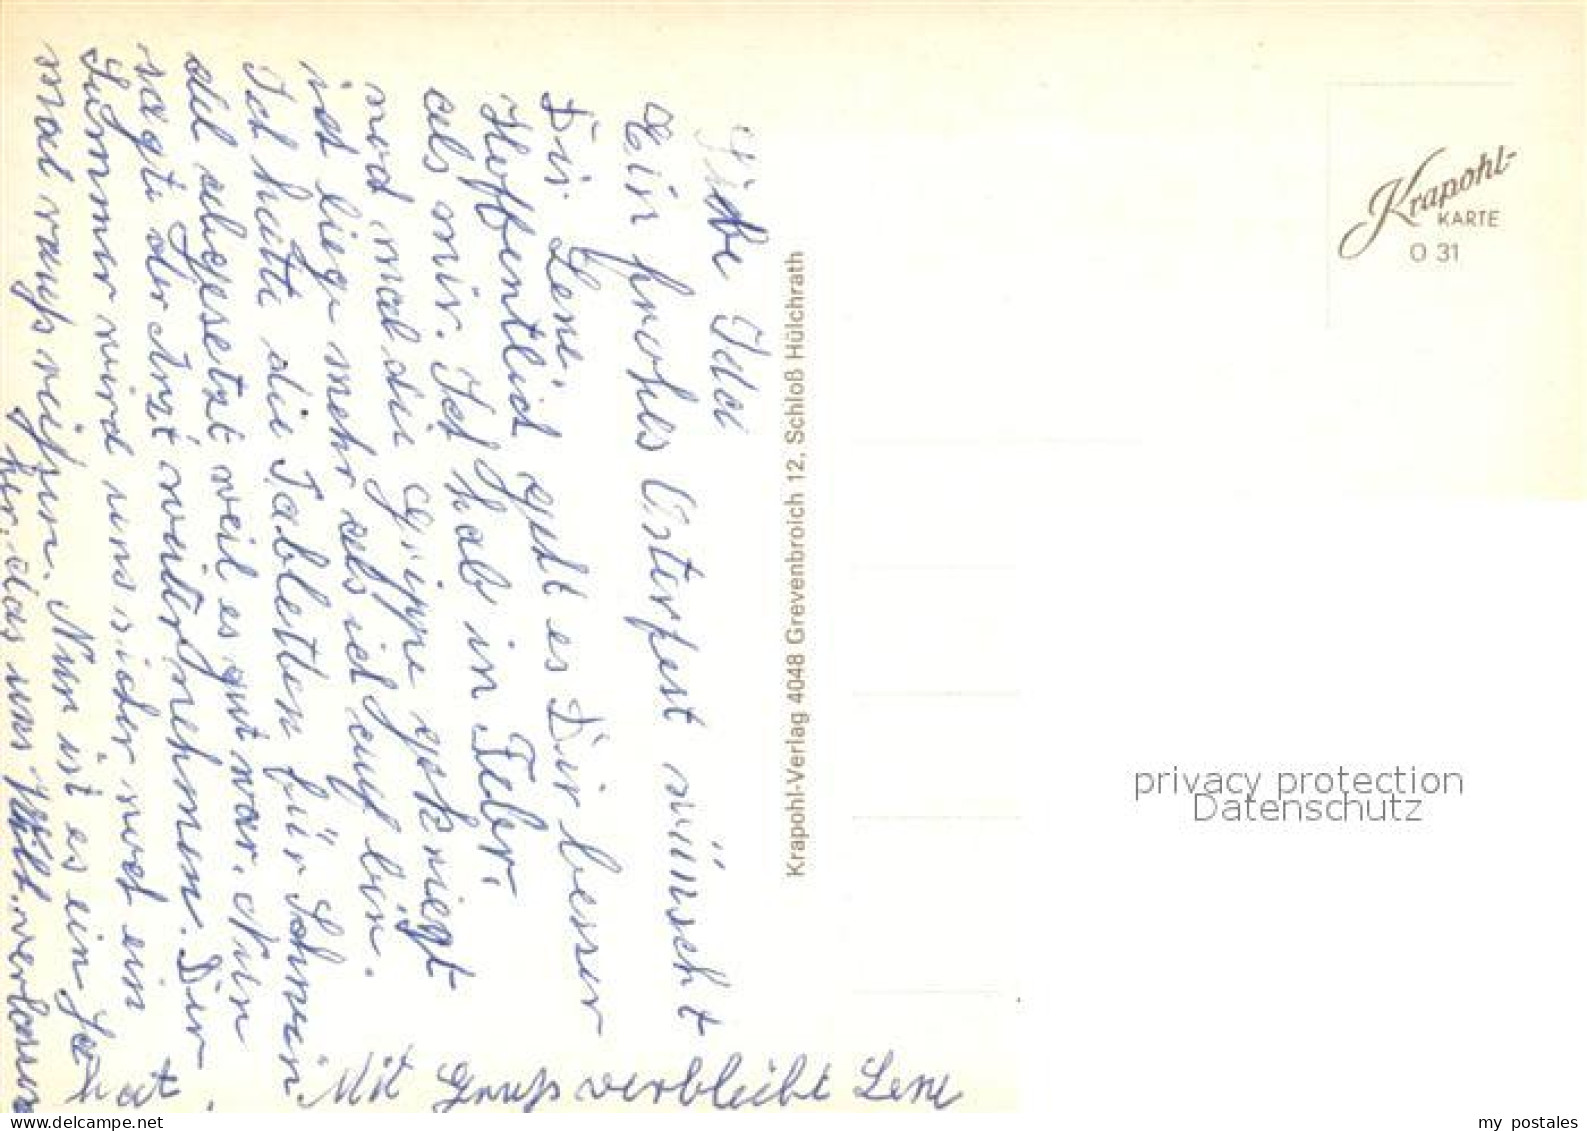 Liebe Idda
Ein frohes Osterfest wünscht
Dir Lene.
Hoffentlich geht es Dir besser
als mir. Ich hab in Febr.
noch mal die Grippe gekriegt
ich liege mehr als ich auf bin.
Ich hatte die Tabletten für Schwin
del abgesetzt weil es gut war. Nun
sagte der Arzt weiter nehmen. Der
Summer wird uns sicher noch ein
mal raus reißen. Nun ist es ein Ja
her, das uns Willi verlassen
hat.
Mit Gruß verbleibt Lene
Krapohl-Verlag 4048 Grevenbroich 12, Schloß Hülchrath
Krapohl-
KARTE
O 31
privacy protection
Datenschutz
www.delcampe.net
my_postales